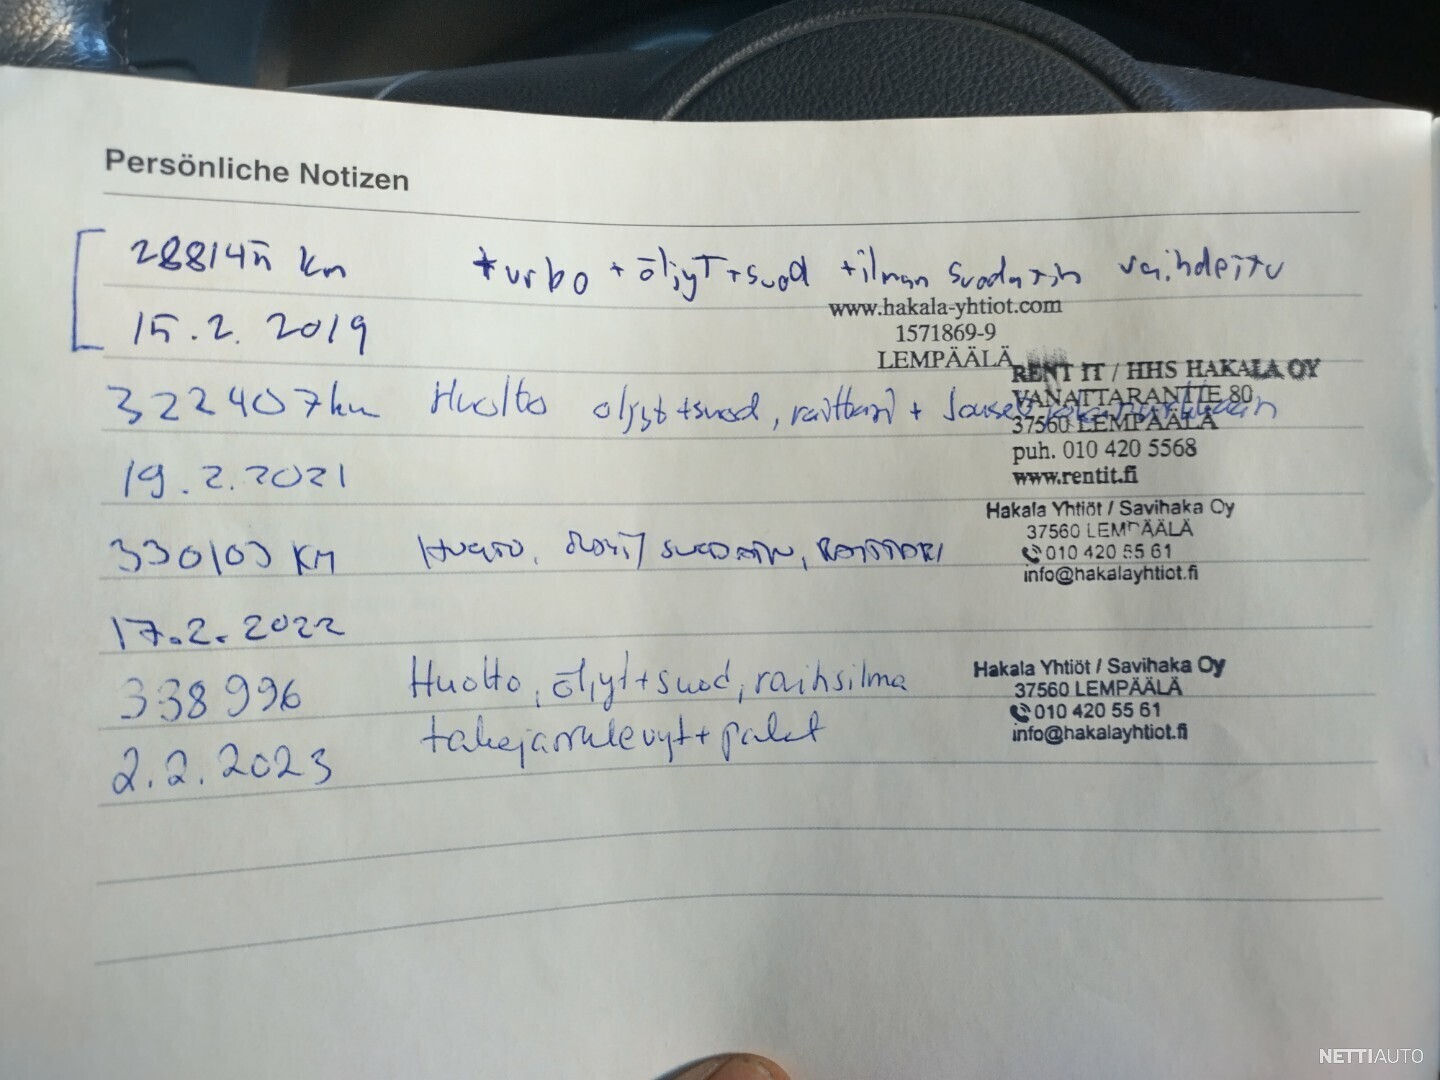 Persönliche Notizen
288145 km turbo + öljyT + suod + ilman suodatin vaihdettu
www.hakala-yhtiot.com
15.2.2019
1571869-9
LEMPÄÄLÄ
RENT IT / HHS HAKALA OY
322407km Huolto öljyt + suod, raittari +
VANATTARANTIE 80
37560 LEMPÄÄLÄ
puh. 010 420 5568
19.2.2021
www.rentit.fi
Hakala Yhtiöt / Savihaka Oy
37560 LEMPÄÄLÄ
330103 KM HUOLTO, SUODATIN, RAITTARI
010 420 55 61
info@hakalayhtiot.fi
17.2.2022
338996 Huolto, öljyt + suod, raitisilma
Hakala Yhtiöt / Savihaka Oy
37560 LEMPÄÄLÄ
010 420 55 61
takajarrulevyt + palat
info@hakalayhtiot.fi
2.2.2023
NETTIAUTO